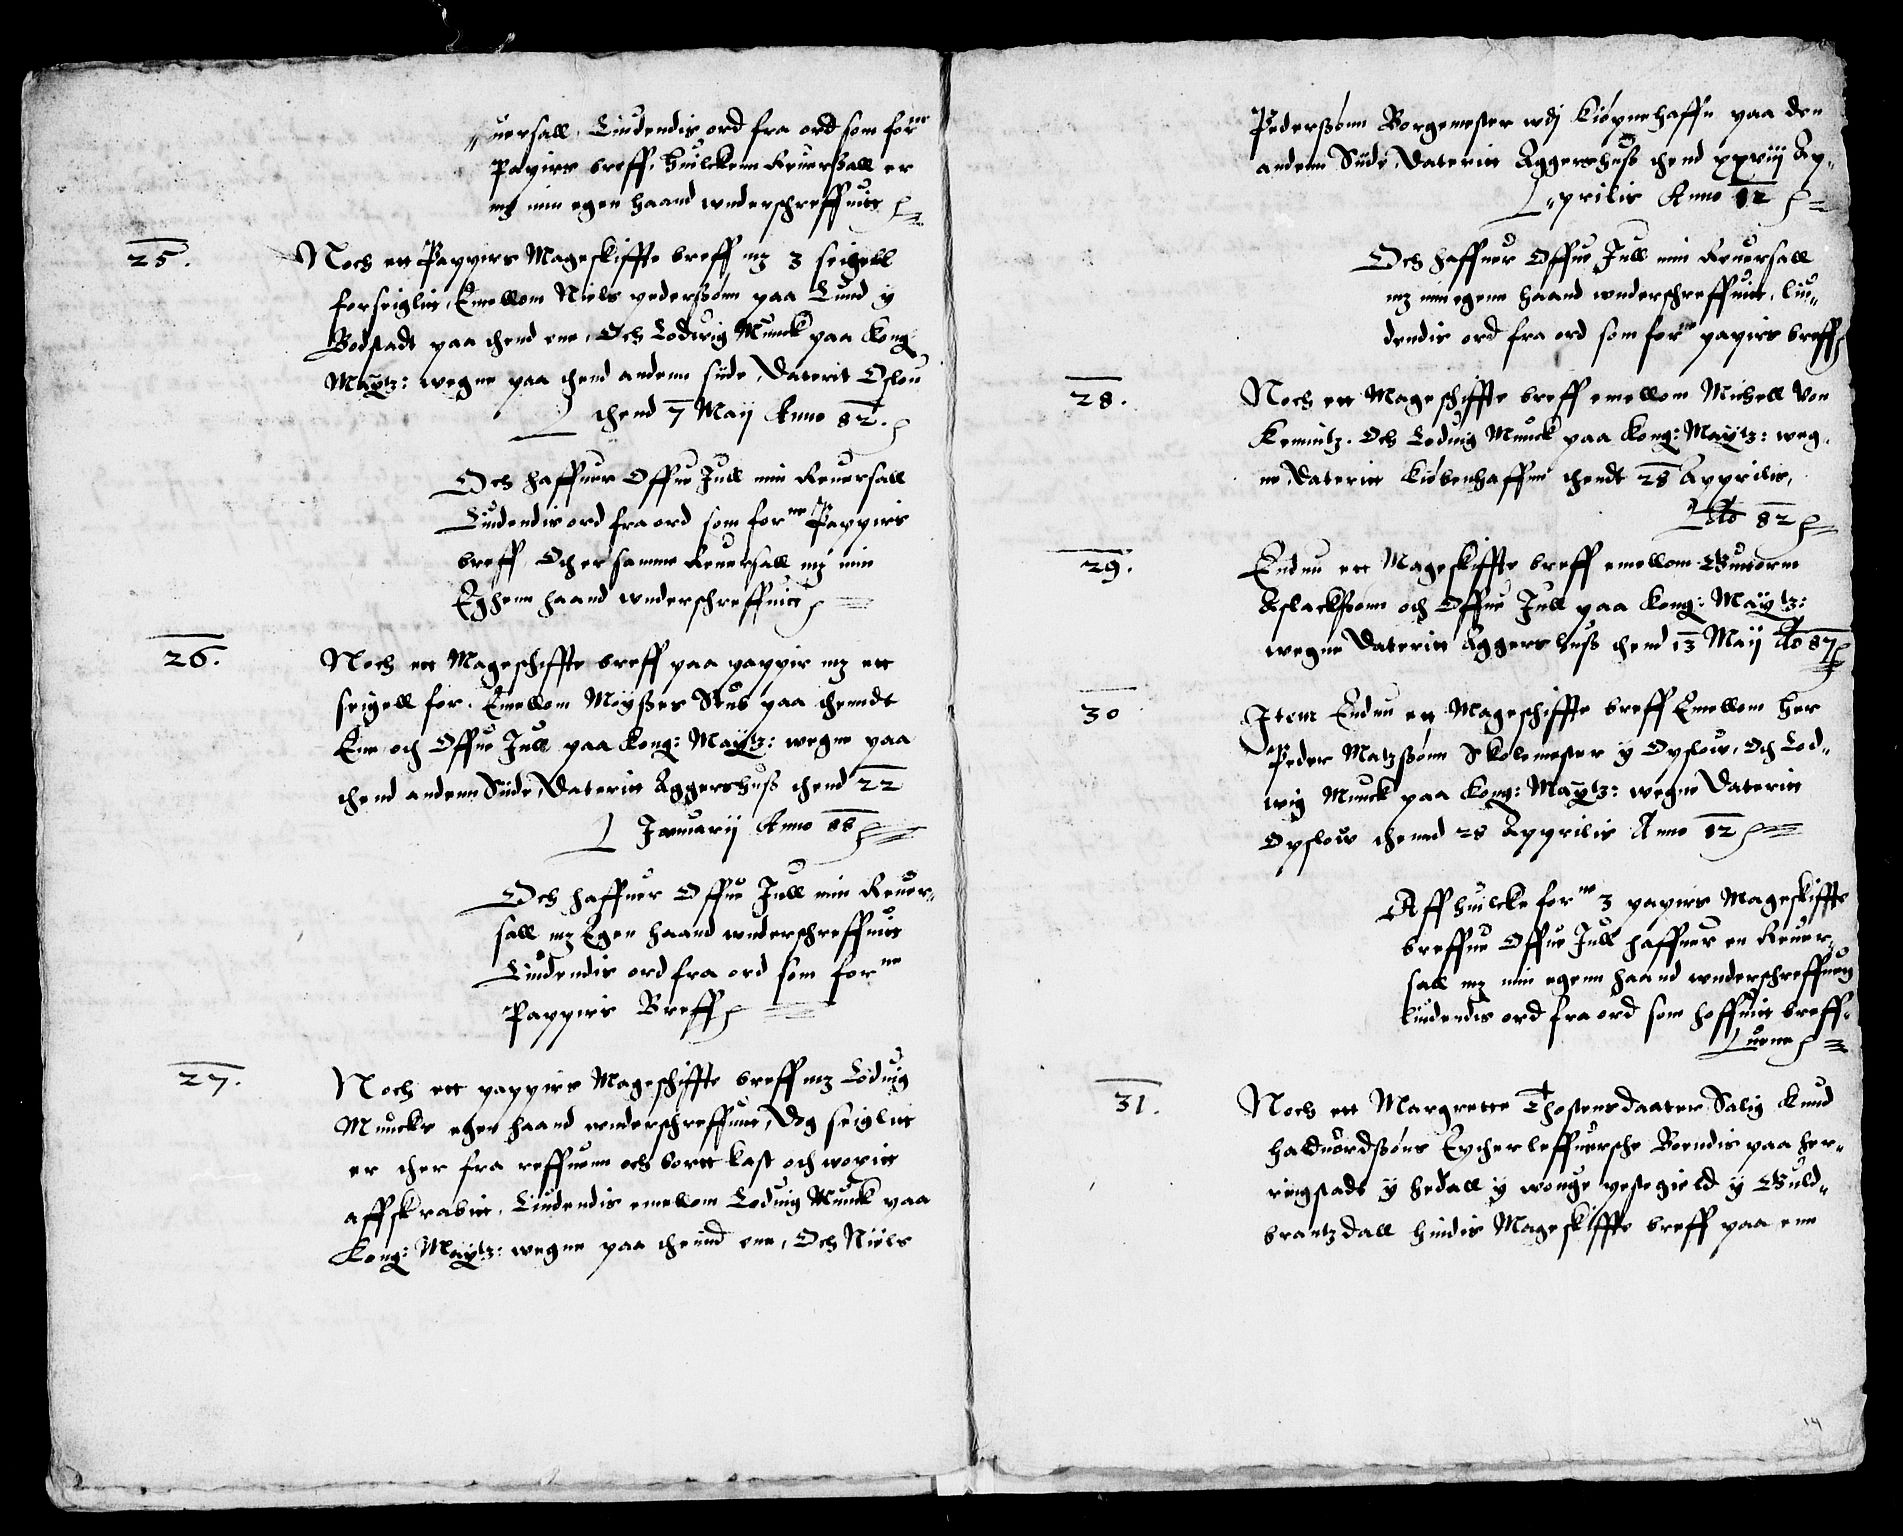 uersall, Liudendis ord fra ord som forne
Papirs breff, Huilckenn Reuerßall er
mz min egen haand wnderschreffuitt
25.
Noch ett Pappirs Mageskiffte breff mz 3 seigell
forseiglit, Emellom Niels pederßønn paa Lund y
Bodstadt paa thend ene, Och Lodwig Munck paa Kong
Maÿtz: wegne paa thend anden side, Daterit Oslou
thend 7 Maij Anno 82.
Och haffuer Offue Jull min Reuersall
Liudendis ord fra ord som forne Pappirs
breff, Och er samme Reuersall mz min
Eghenn haand wnderschreffuitt
26.
Noch ett Mageschiffte breff paa pappir mz ett
seigell for, Emellom Moÿßes Stub paa thenndt
Ene och Offue Jull paa Kong: Maÿtz: wegne paa
thend anden Side, Daterit Aggershuß thend 22
Januarij Anno 88
Och haffuer Offue Jull min Reuer-
sall mz Egen haand wnderschreffuitt
Liudendis ord fra ord som forne
Pappirs Breff
27.
Noch ett pappirs Mageschiffte breff mz Loduig
Muncks egen haand wnderschreffuit, Dog seiglit
er ther fra reffuenn och bortt kast och wopitt
affskrabit, Liudendis emellom Loduig Munck paa
Kong: Maÿtz: wegne paa thennd ene, Och Niels
Pederßønn Borgemester wdj Kiøpnehaffn paa den
anden Side, Daterit Aggershuß thend xxviij Ap-
prilis Anno 82
Och haffuer Offue Jull min Reuersall
mz min egenn haand wnderschreffuitt, liu-
dendis ord fra ord som forne papirs breff
28.
Noch ett Mageschiffte breff emellom Michell Von
Kemintz. Och Loduig Munck paa Kong: Maÿtz: weg-
ne, Daterit Kiøbenhaffnn thendt 28 Apprilis,
Ao 82
29.
Endnu ett Mageskiffte breff emellom Guttorm
Aslackßønn och Offue Jull paa Kong: Maÿtz:
wegne Daterit Aggershuß thend 13 Maij Ao 87
30
Item Endnu ett Mageschiffte breff Emellom Her
Peder Matzßønn Skolemester y Opslow, Och Lod-
wig Munck paa Kong: Maÿtz: wegne Daterit
Opslow thennd 28 Apprilis Anno 82
Aff huilcke forne 3 papirs Mageskiffte
breffue Offue Jull haffuer en Reuer-
sall mz min egenn haand wnderschreffuitt
liudendis ord fra ord som hoffuit breff-
uene
31.
Noch ett Margrette Thostensdaater Salig Knud
Halduordßøns Effterleffuersche Boendis paa Her-
ringstadt y Hedall y wouge prestegield y Guld-
brantzdall hindis Mageskiffte breff paa enn
14